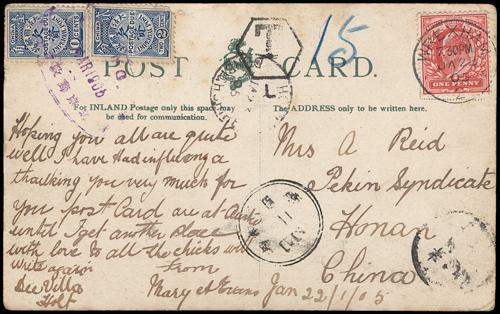 POSTAGE DUE
10 CENTS
POSTAGE DUE
2
T
15
WREXHAM
7.30PM
JA 22
05
ONE PENNY
POST CARD.
For INLAND Postage only this space may
be used for communication.
The ADDRESS only to be written here.
Hoping you all are quite
well I have Had influenza
thanking you very much for
you post Card are at
until I get another place
with love to all the chicks will
write again
From
Dee Villa
Holt
Mary A Evans Jan 22/1/05
Mrs A Reid
Pekin Syndicate
Honan
China